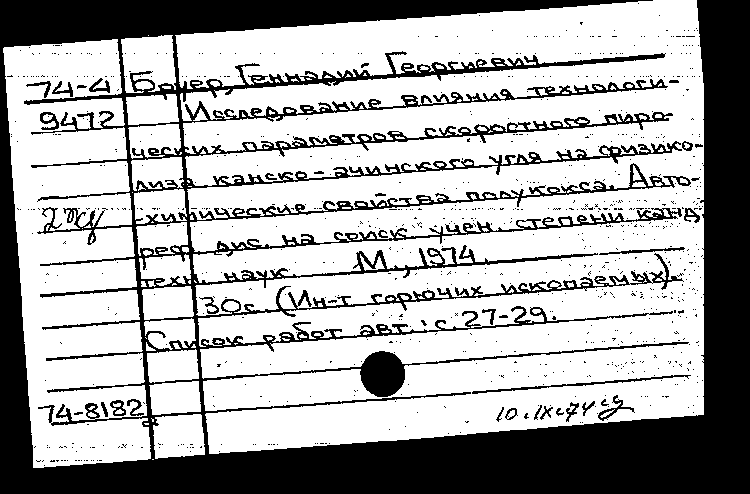 74-4 Бруер, Геннадий Георгиевич.
9472 Исследование влияния технологи-
ческих параметров скоростного пиро-
лиза канско-ачинского угля на физико-
-химические свойства полукокса. Авто-
реф. дис. на соиск. учен. степени канд.
техн. наук. М., 1974.
30с. (Ин-т горючих ископаемых).
Список работ авт.: с. 27-29.
74-8182
10.IX-74